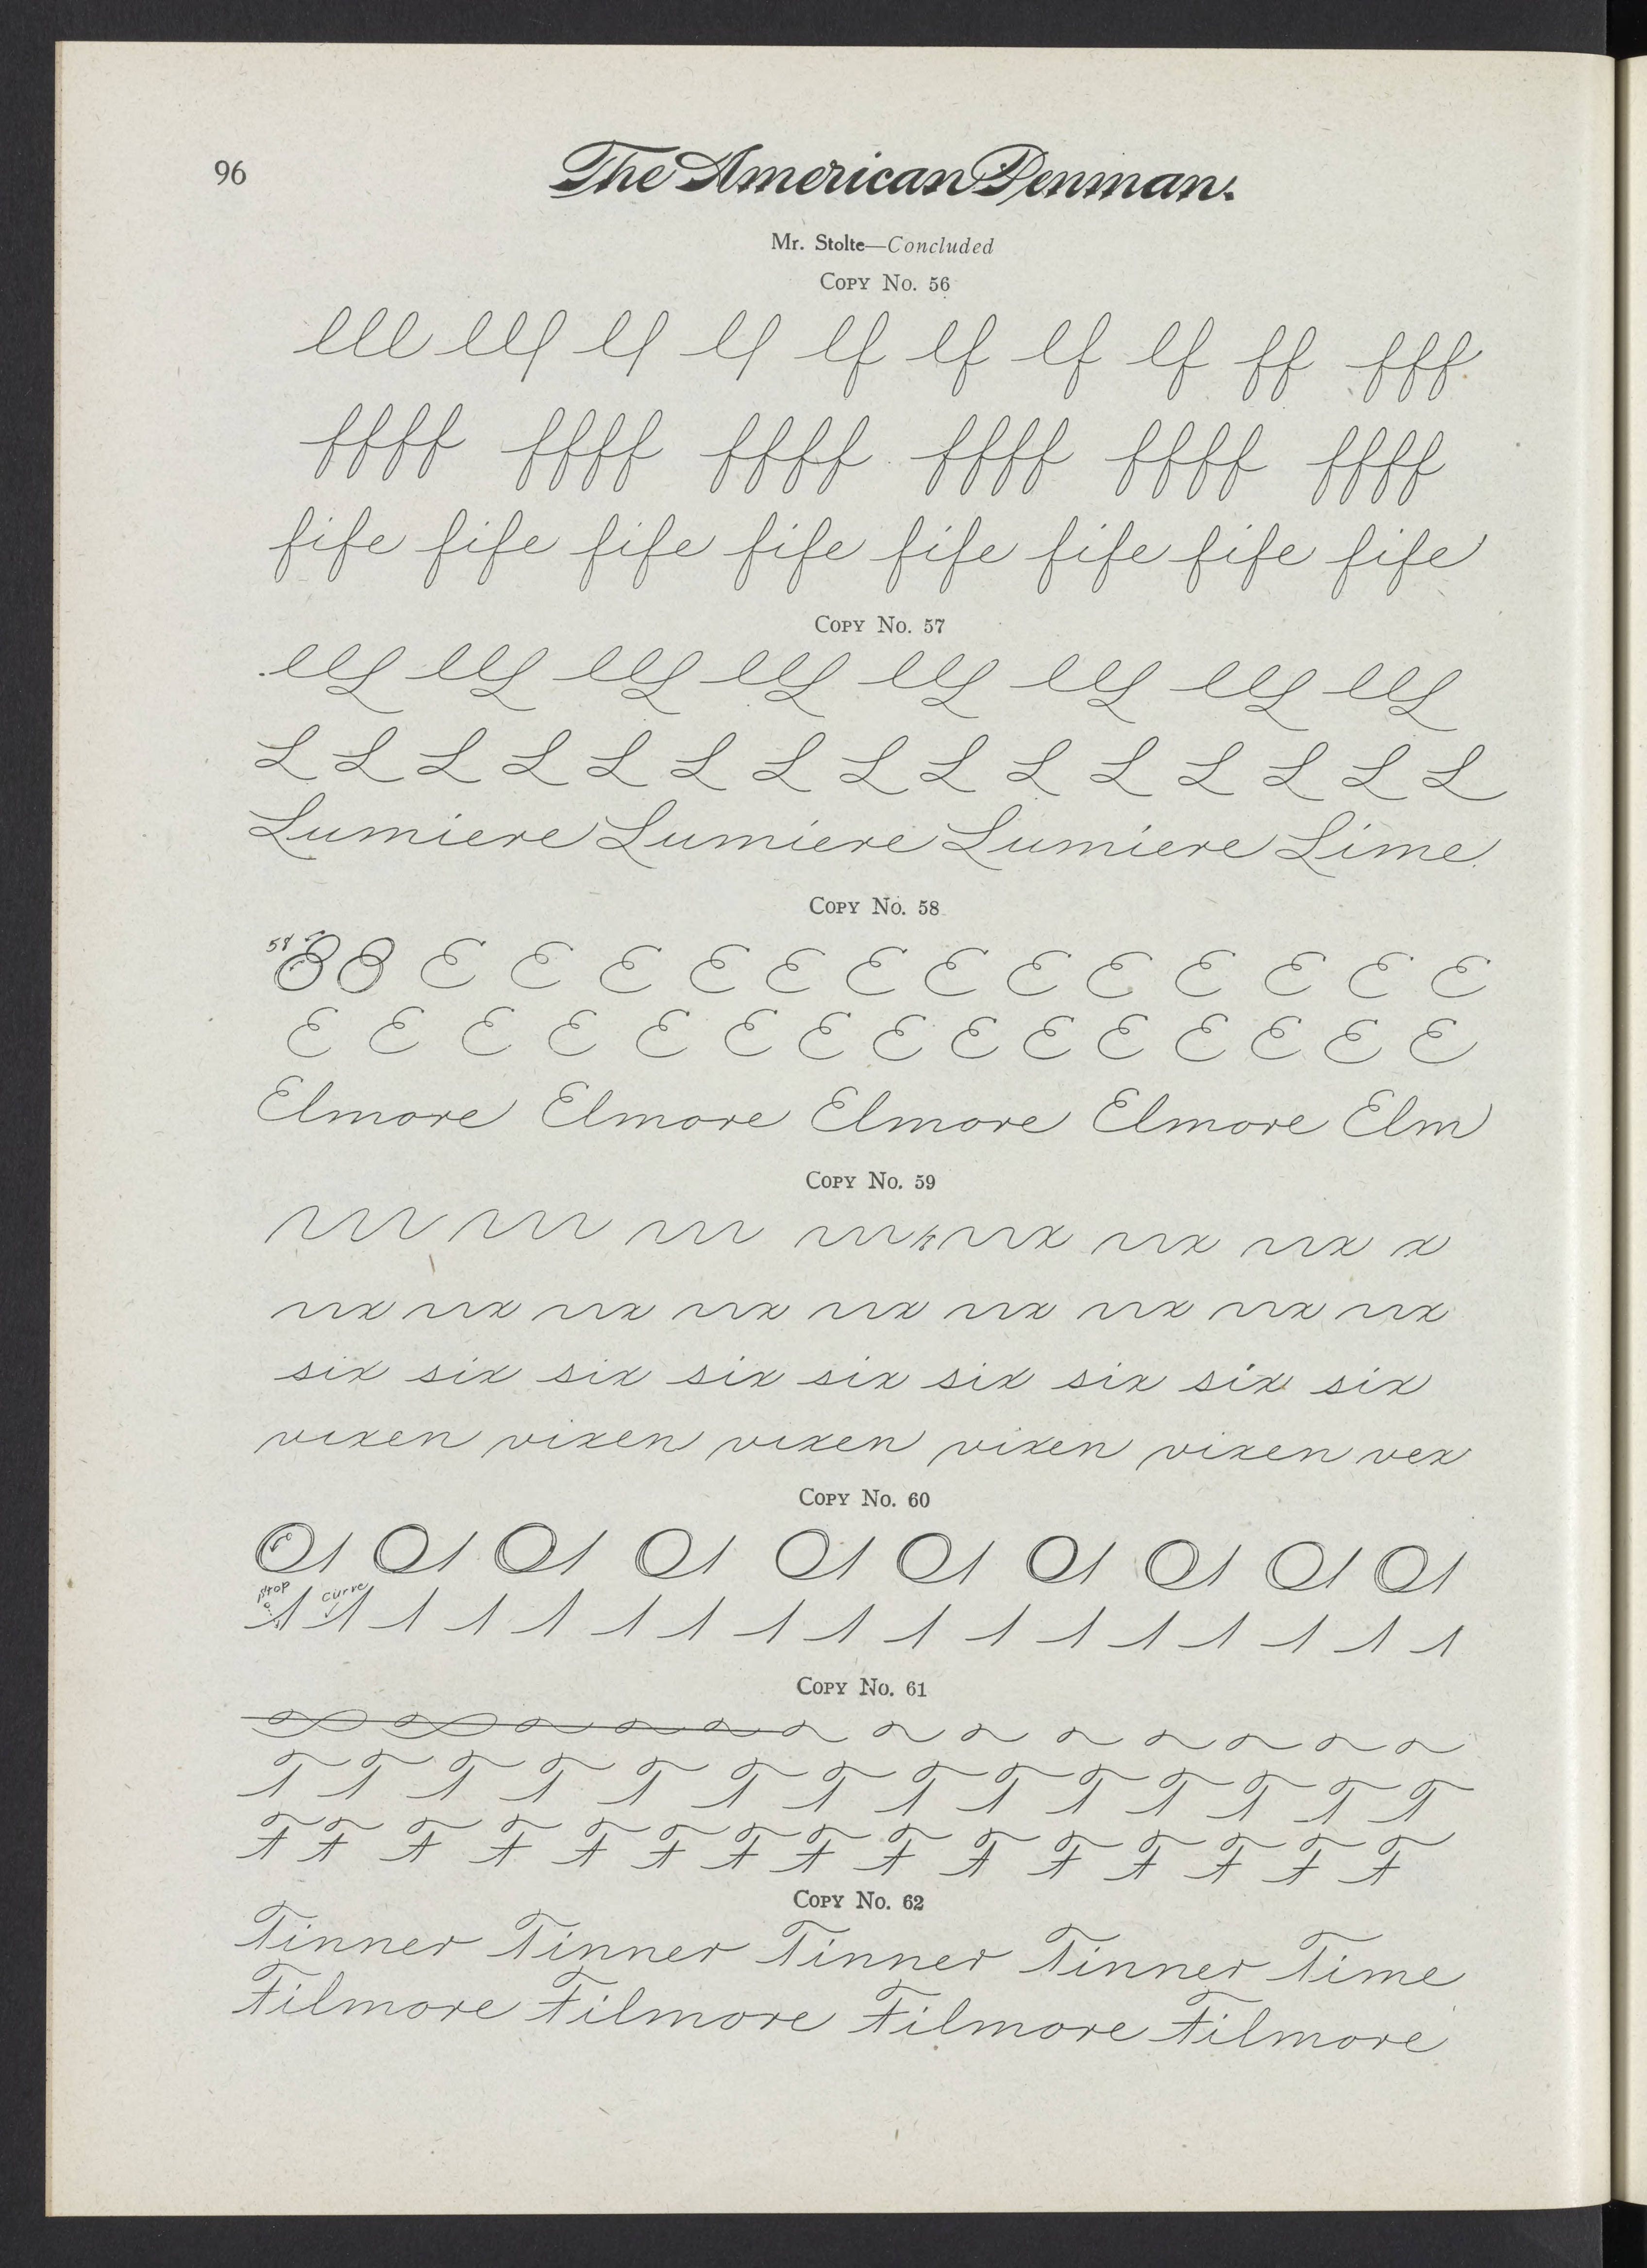 96
The American Penman.
Mr. Stolte—Concluded
Copy No. 56
lll llf lf lf lf lf lf lf ff fff
ffff ffff ffff ffff ffff ffff
fife fife fife fife fife fife fife fife
Copy No. 57
llL llL llL llL llL llL llL llL
L L L L L L L L L L L L L L L
Lumiere Lumiere Lumiere Lime
Copy No. 58
58 E E E E E E E E E E E E E
E E E E E E E E E E E E E E E
Elmore Elmore Elmore Elmore Elm
Copy No. 59
x x x x
x x x x x x x x x
six six six six six six six six six
vixen vixen vixen vixen vixen vex
Copy No. 60
O1 O1 O1 O1 O1 O1 O1 O1 O1 O1
stop curve
1 1 1 1 1 1 1 1 1 1 1 1 1 1 1 1 1
Copy No. 61
T T T T T T T T T T T T T T
F F F F F F F F F F F F F F F
Copy No. 62
Tinner Tinner Tinner Tinner Time
Filmore Filmore Filmore Filmore